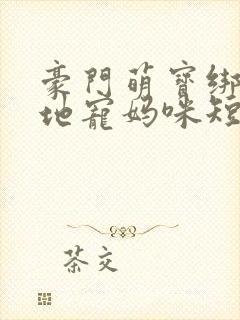 豪門萌寶綁
地寵媽咪短
茶交